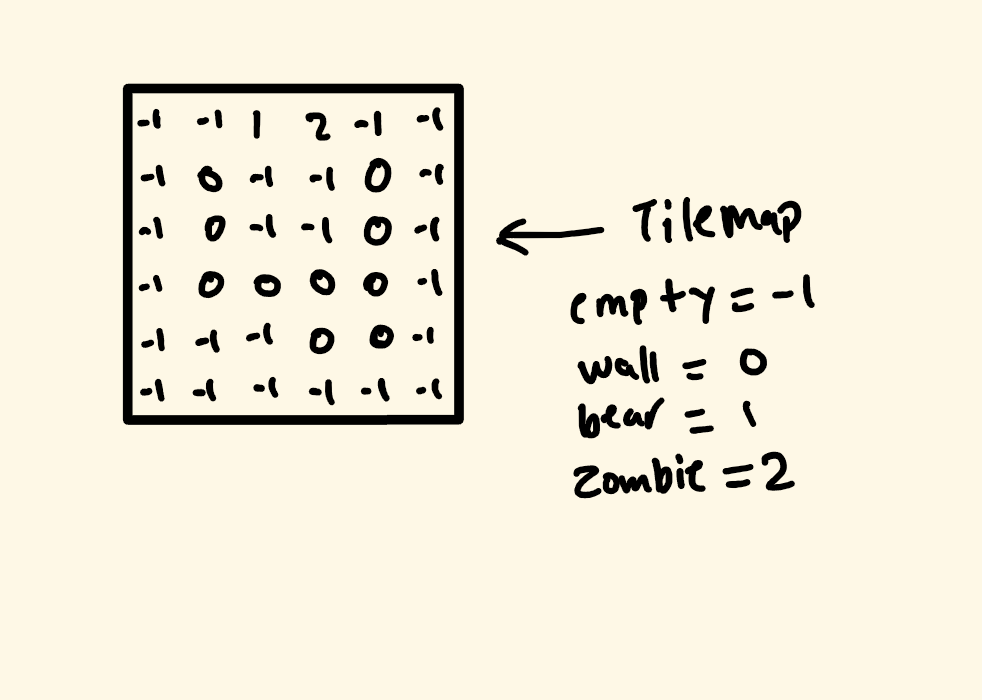 -1 -1 1 2 -1 -1
-1 0 -1 -1 0 -1
-1 0 -1 -1 0 -1
-1 0 0 0 0 -1
-1 -1 -1 0 0 -1
-1 -1 -1 -1 -1 -1
Tilemap
empty = -1
wall = 0
bear = 1
zombie = 2